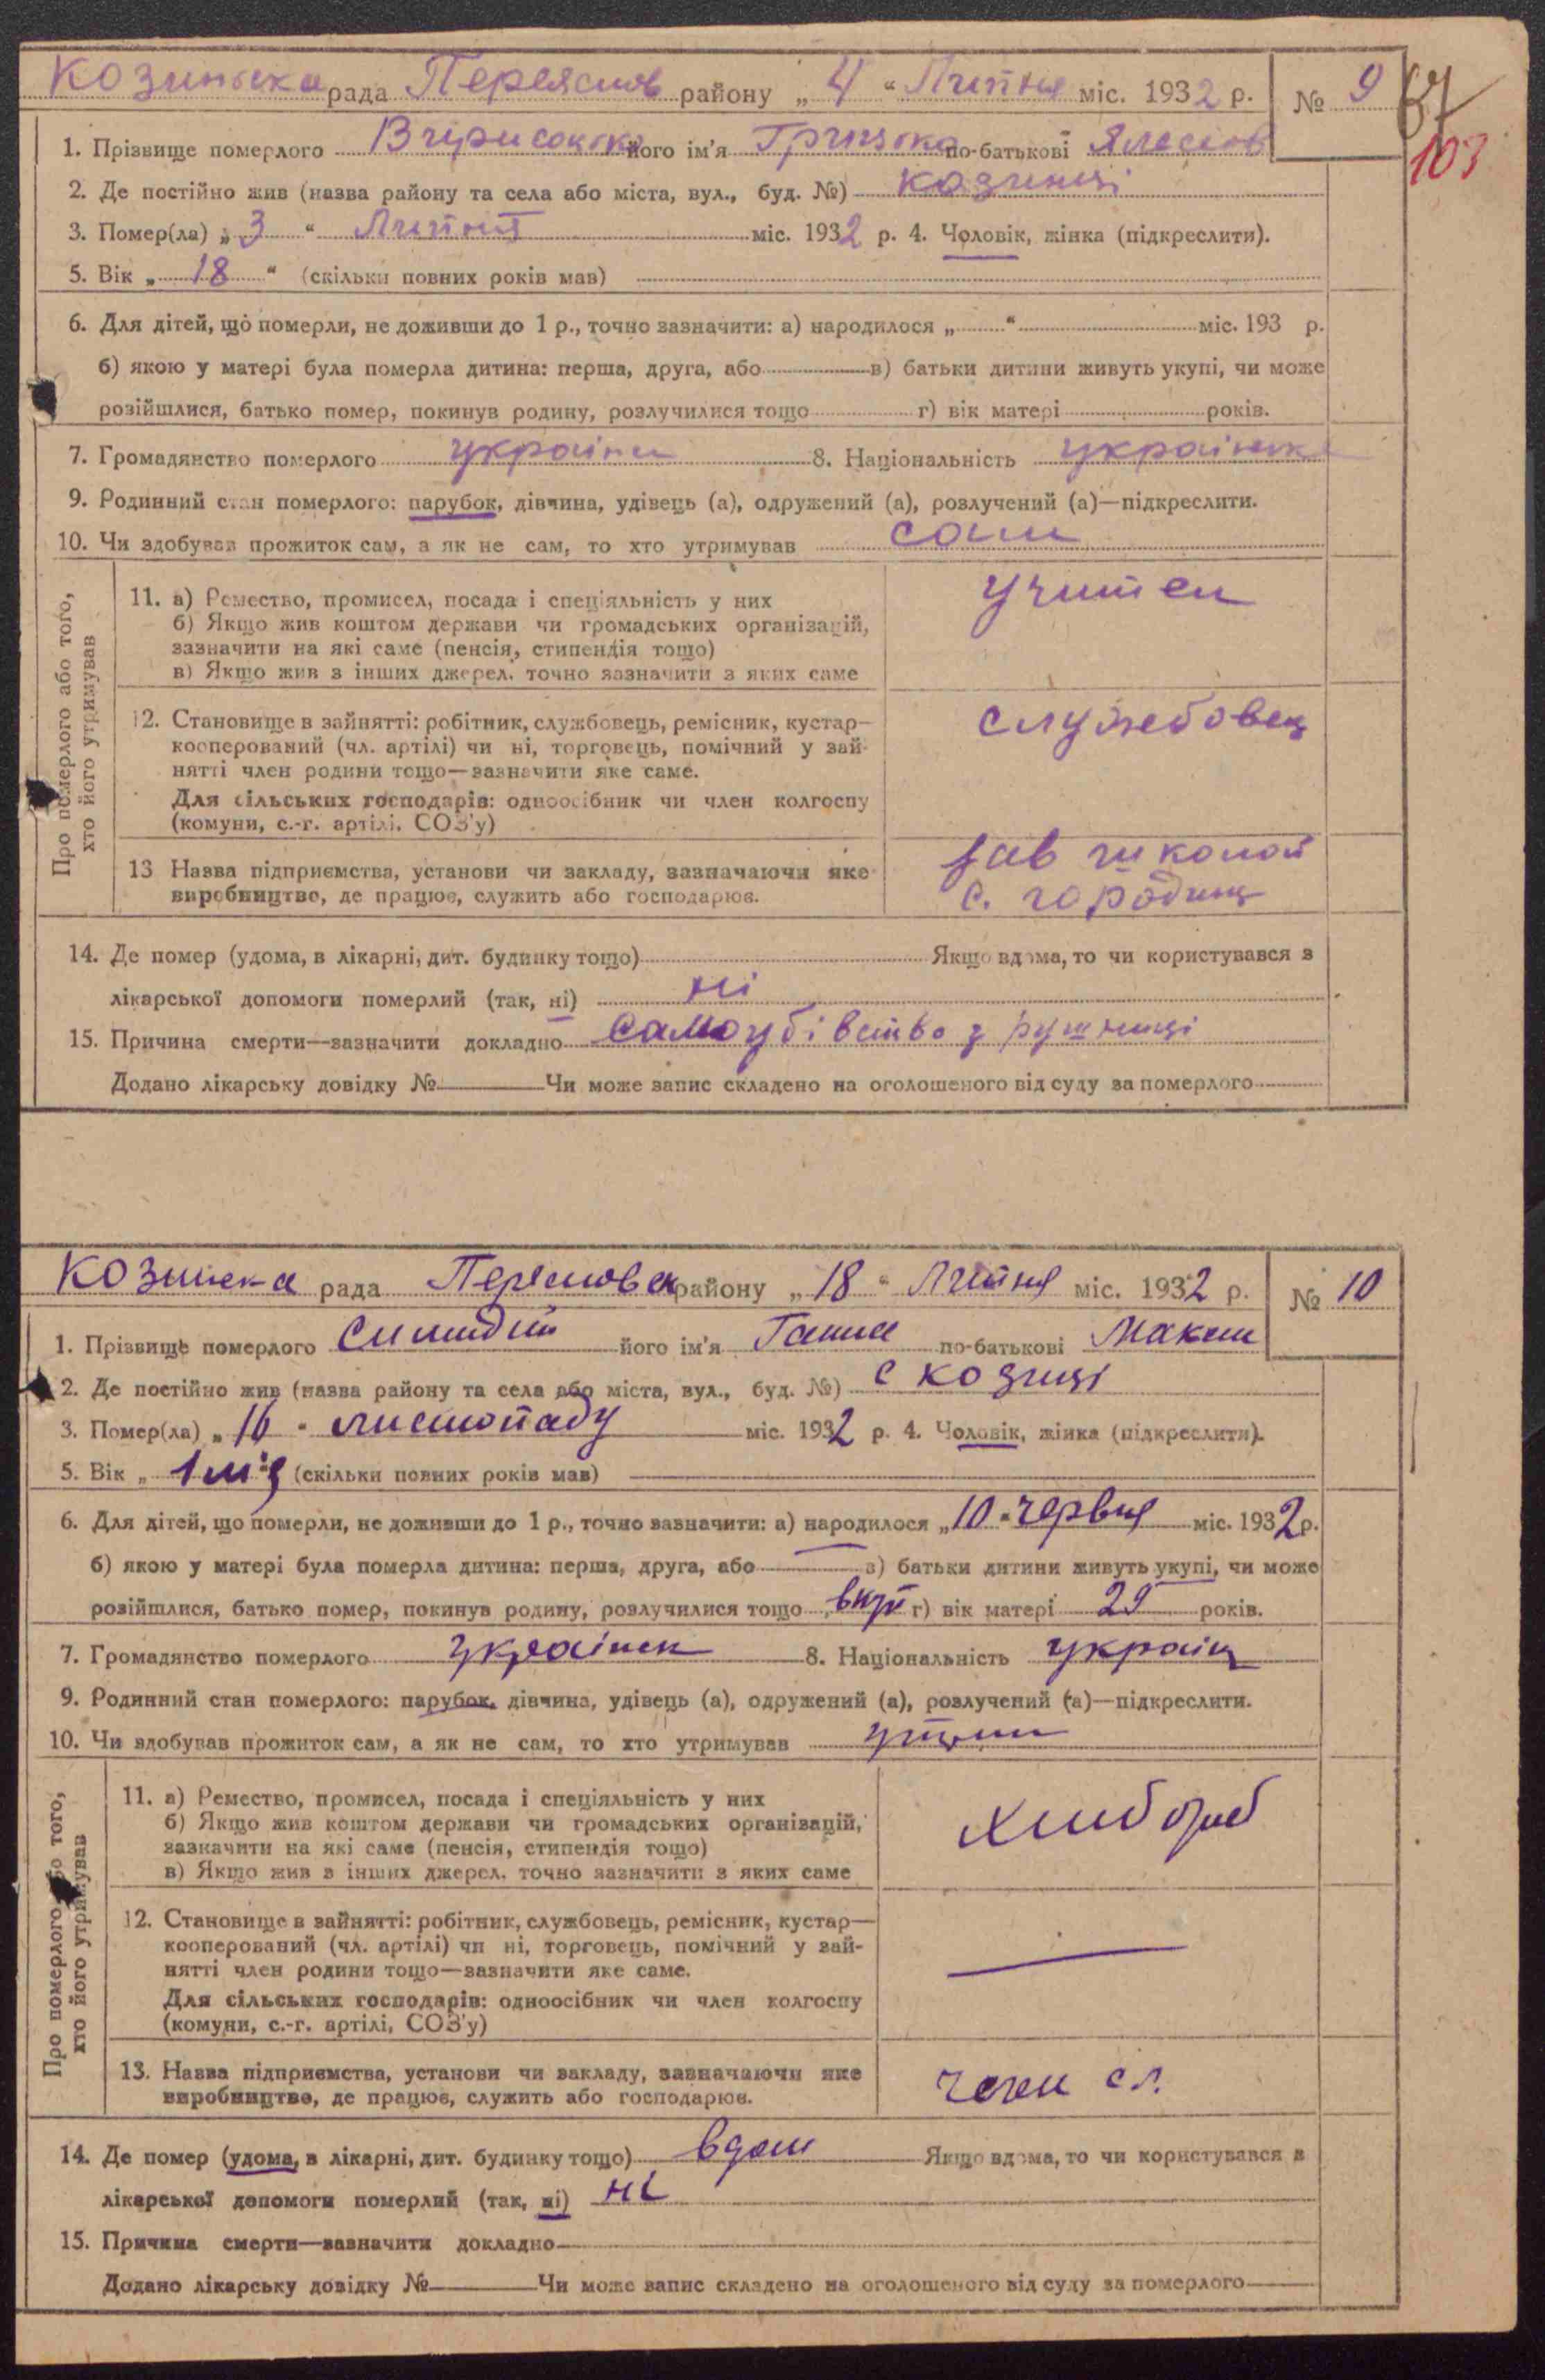 Козинська рада Переяслов району „ 4 “ Липня міс. 1932 р. № 9
103
1. Прізвище померлого його ім'я Грицько по-батькові
2. Де постійно жив (назва району та села або міста, вул., буд. №) Козинці
3. Помер(ла) „ 3 “ Липня міс. 1932 р. 4. Чоловік, жінка (підкреслити).
5. Вік „ 18 “ (скільки повних років мав)
6. Для дітей, що померли, не доживши до 1 р., точно зазначити: а) народилося „ “ міс. 193 р.
б) якою у матері була померла дитина: перша, друга, або в) батьки дитини живуть укупі, чи може
розійшлися, батько помер, покинув родину, розлучилися тощо г) вік матері років.
7. Громадянство померлого 8. Національність
9. Родинний стан померлого: парубок, дівчина, удівець (а), одружений (а), розлучений (а)—підкреслити.
10. Чи здобував прожиток сам, а як не сам, то хто утримував сам
Про померлого або того, хто його утримував
11. а) Ремество, промисел, посада і спеціяльність у них
б) Якщо жив коштом держави чи громадських організацій,
зазначити на які саме (пенсія, стипендія тощо)
в) Якщо жив з інших джерел, точно зазначити з яких саме
учител
12. Становище в зайнятті: робітник, службовець, ремісник, кустар—
кооперований (чл. артілі) чи ні, торговець, помічний у зай-
нятті член родини тощо—зазначити яке саме.
Для сільських господарів: одноосібник чи член колгоспу
(комуни, с.-г. артілі, СОЗ'у)
служебовец
13 Назва підприємства, установи чи закладу, зазначаючи яке
виробництво, де працює, служить або господарює.
зав школой
с.
14. Де помер (удома, в лікарні, дит. будинку тощо) Якщо вдома, то чи користувався з
лікарської допомоги померлий (так, ні) ні
15. Причина смерти—зазначити докладно самоубівство з рушниці
Додано лікарську довідку № Чи може запис складено на оголошеного від суду за померлого
Козинска рада району „ 18 “ Липня міс. 1932 р. № 10
1. Прізвище померлого його ім'я Ганна по-батькові Макси
2. Де постійно жив (назва району та села або міста, вул., буд. №) с Козинці
3. Помер(ла) „ 16 “ листопаду міс. 1932 р. 4. Чоловік, жінка (підкреслити).
5. Вік „ 1 м-ц (скільки повних років мав)
6. Для дітей, що померли, не доживши до 1 р., точно зазначити: а) народилося „ 10 “ червня міс. 1932 р.
б) якою у матері була померла дитина: перша, друга, або в) батьки дитини живуть укупі, чи може
розійшлися, батько помер, покинув родину, розлучилися тощо вкуп г) вік матері років.
7. Громадянство померлого 8. Національність
9. Родинний стан померлого: парубок, дівчина, удівець (а), одружений (а), розлучений (а)—підкреслити.
10. Чи здобував прожиток сам, а як не сам, то хто утримував
Про померлого або того, хто його утримував
11. а) Ремество, промисел, посада і спеціяльність у них
б) Якщо жив коштом держави чи громадських організацій,
зазначити на які саме (пенсія, стипендія тощо)
в) Якщо жив з інших джерел, точно зазначити з яких саме
хлібороб
12. Становище в зайнятті: робітник, службовець, ремісник, кустар—
кооперований (чл. артілі) чи ні, торговець, помічний у зай-
нятті член родини тощо—зазначити яке саме.
Для сільських господарів: одноосібник чи член колгоспу
(комуни, с.-г. артілі, СОЗ'у)
13. Назва підприємства, установи чи закладу, зазначаючи яке
виробництво, де працює, служить або господарює.
14. Де помер (удома, в лікарні, дит. будинку тощо) вдом Якщо вдома, то чи користувався з
лікарської допомоги померлий (так, ні) ні
15. Причина смерти—зазначити докладно
Додано лікарську довідку № Чи може запис складено на оголошеного від суду за померлого